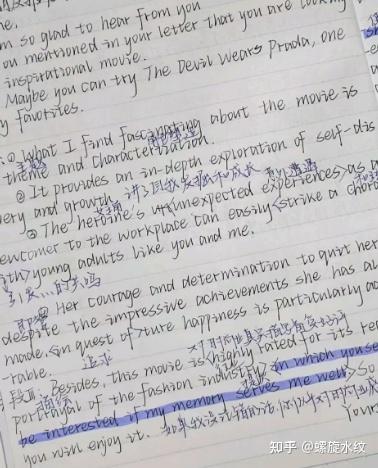 me.
m so glad to hear from you
ou mentioned in your letter that you are looking
inspirational movie.
Maybe you can try The Devil Wears Prada, one
y favorites.
① What I find fascinating about the movie is
主题
theme and characterization.
② It provides an in-depth exploration of self-dis
very and growth 讲了自我发现和成长
③ The heroine's unexpected experiences as a
ewcomer to the workplace can easily <strike a chord
ith> young adults like you and me.
引 的共鸣
Her courage and determination to quit her
despite the impressive achievements she has al
made, <in quest of> ture happiness is particularly ad
rable. 追求
段三: Besides, this movie is <highly rated for its re
portrayal of the fashion industry, in which you se
be interested if my memory serves me well> So
you will enjoy it.
Yours
知乎 @螺旋水纹